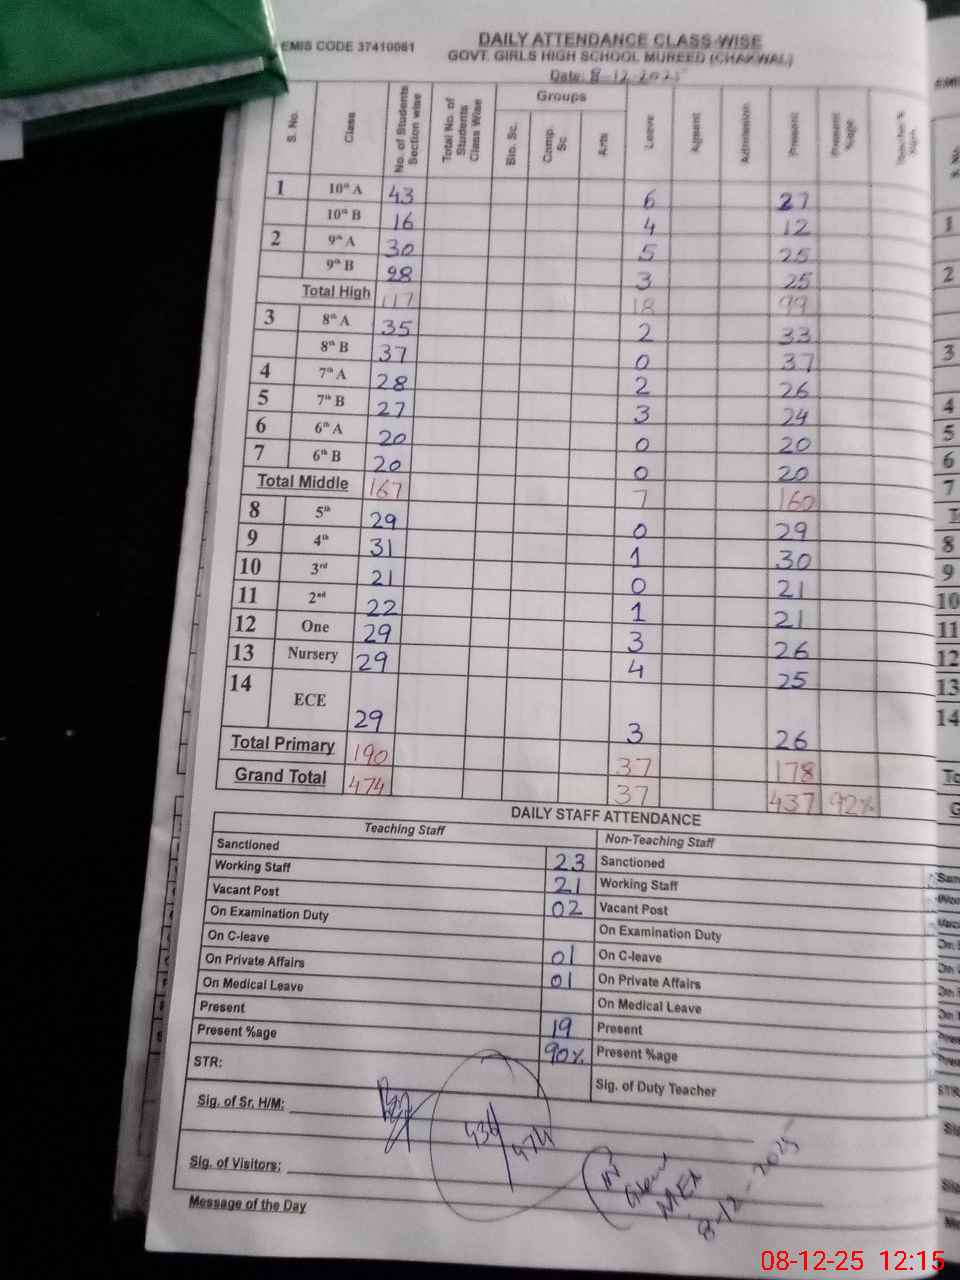 EMIS CODE 37410061
DAILY ATTENDANCE CLASS-WISE
GOVT. GIRLS HIGH SCHOOL MUREED (CHAKWAL)
Date: 8-12-2025
S. No. Class No. of Students Section wise Total No. of Students Class Wise Groups Bio. Sc. Comp. Sc Arts Leave Absent Admission Present Present %age Teacher's Sign
1 10th A 43 6 27
10th B 16 4 12
2 9th A 30 5 25
9th B 28 3 25
Total High 117 18 99
3 8th A 35 2 33
8th B 37 0 37
4 7th A 28 2 26
5 7th B 27 3 24
6 6th A 20 0 20
7 6th B 20 0 20
Total Middle 167 7 160
8 5th 29 0 29
9 4th 31 1 30
10 3rd 21 0 21
11 2nd 22 1 21
12 One 29 3 26
13 Nursery 29 4 25
14 ECE 29 3 26
Total Primary 190 37 178
Grand Total 474 37 437 92%
DAILY STAFF ATTENDANCE
Teaching Staff Non-Teaching Staff
Sanctioned 23 Sanctioned
Working Staff 21 Working Staff
Vacant Post 02 Vacant Post
On Examination Duty On Examination Duty
On C-leave 01 On C-leave
On Private Affairs 01 On Private Affairs
On Medical Leave On Medical Leave
Present 19 Present
Present %age 90% Present %age
STR: Sig. of Duty Teacher
Sig. of Sr. H/M:
474
Sig. of Visitors:
MEA
8-12-2025
Message of the Day
08-12-25 12:15